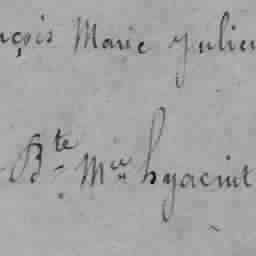 nçois Marie Julien
Bte Mie hyacint